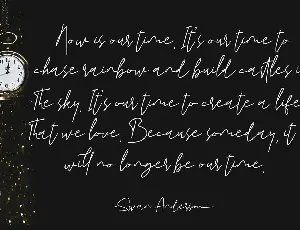 Now is our time. It's our time to
chase rainbow and build castles in
the sky. It's our time to create a life
that we love. Because someday, it
will no longer be our time.
Sivan Anderson